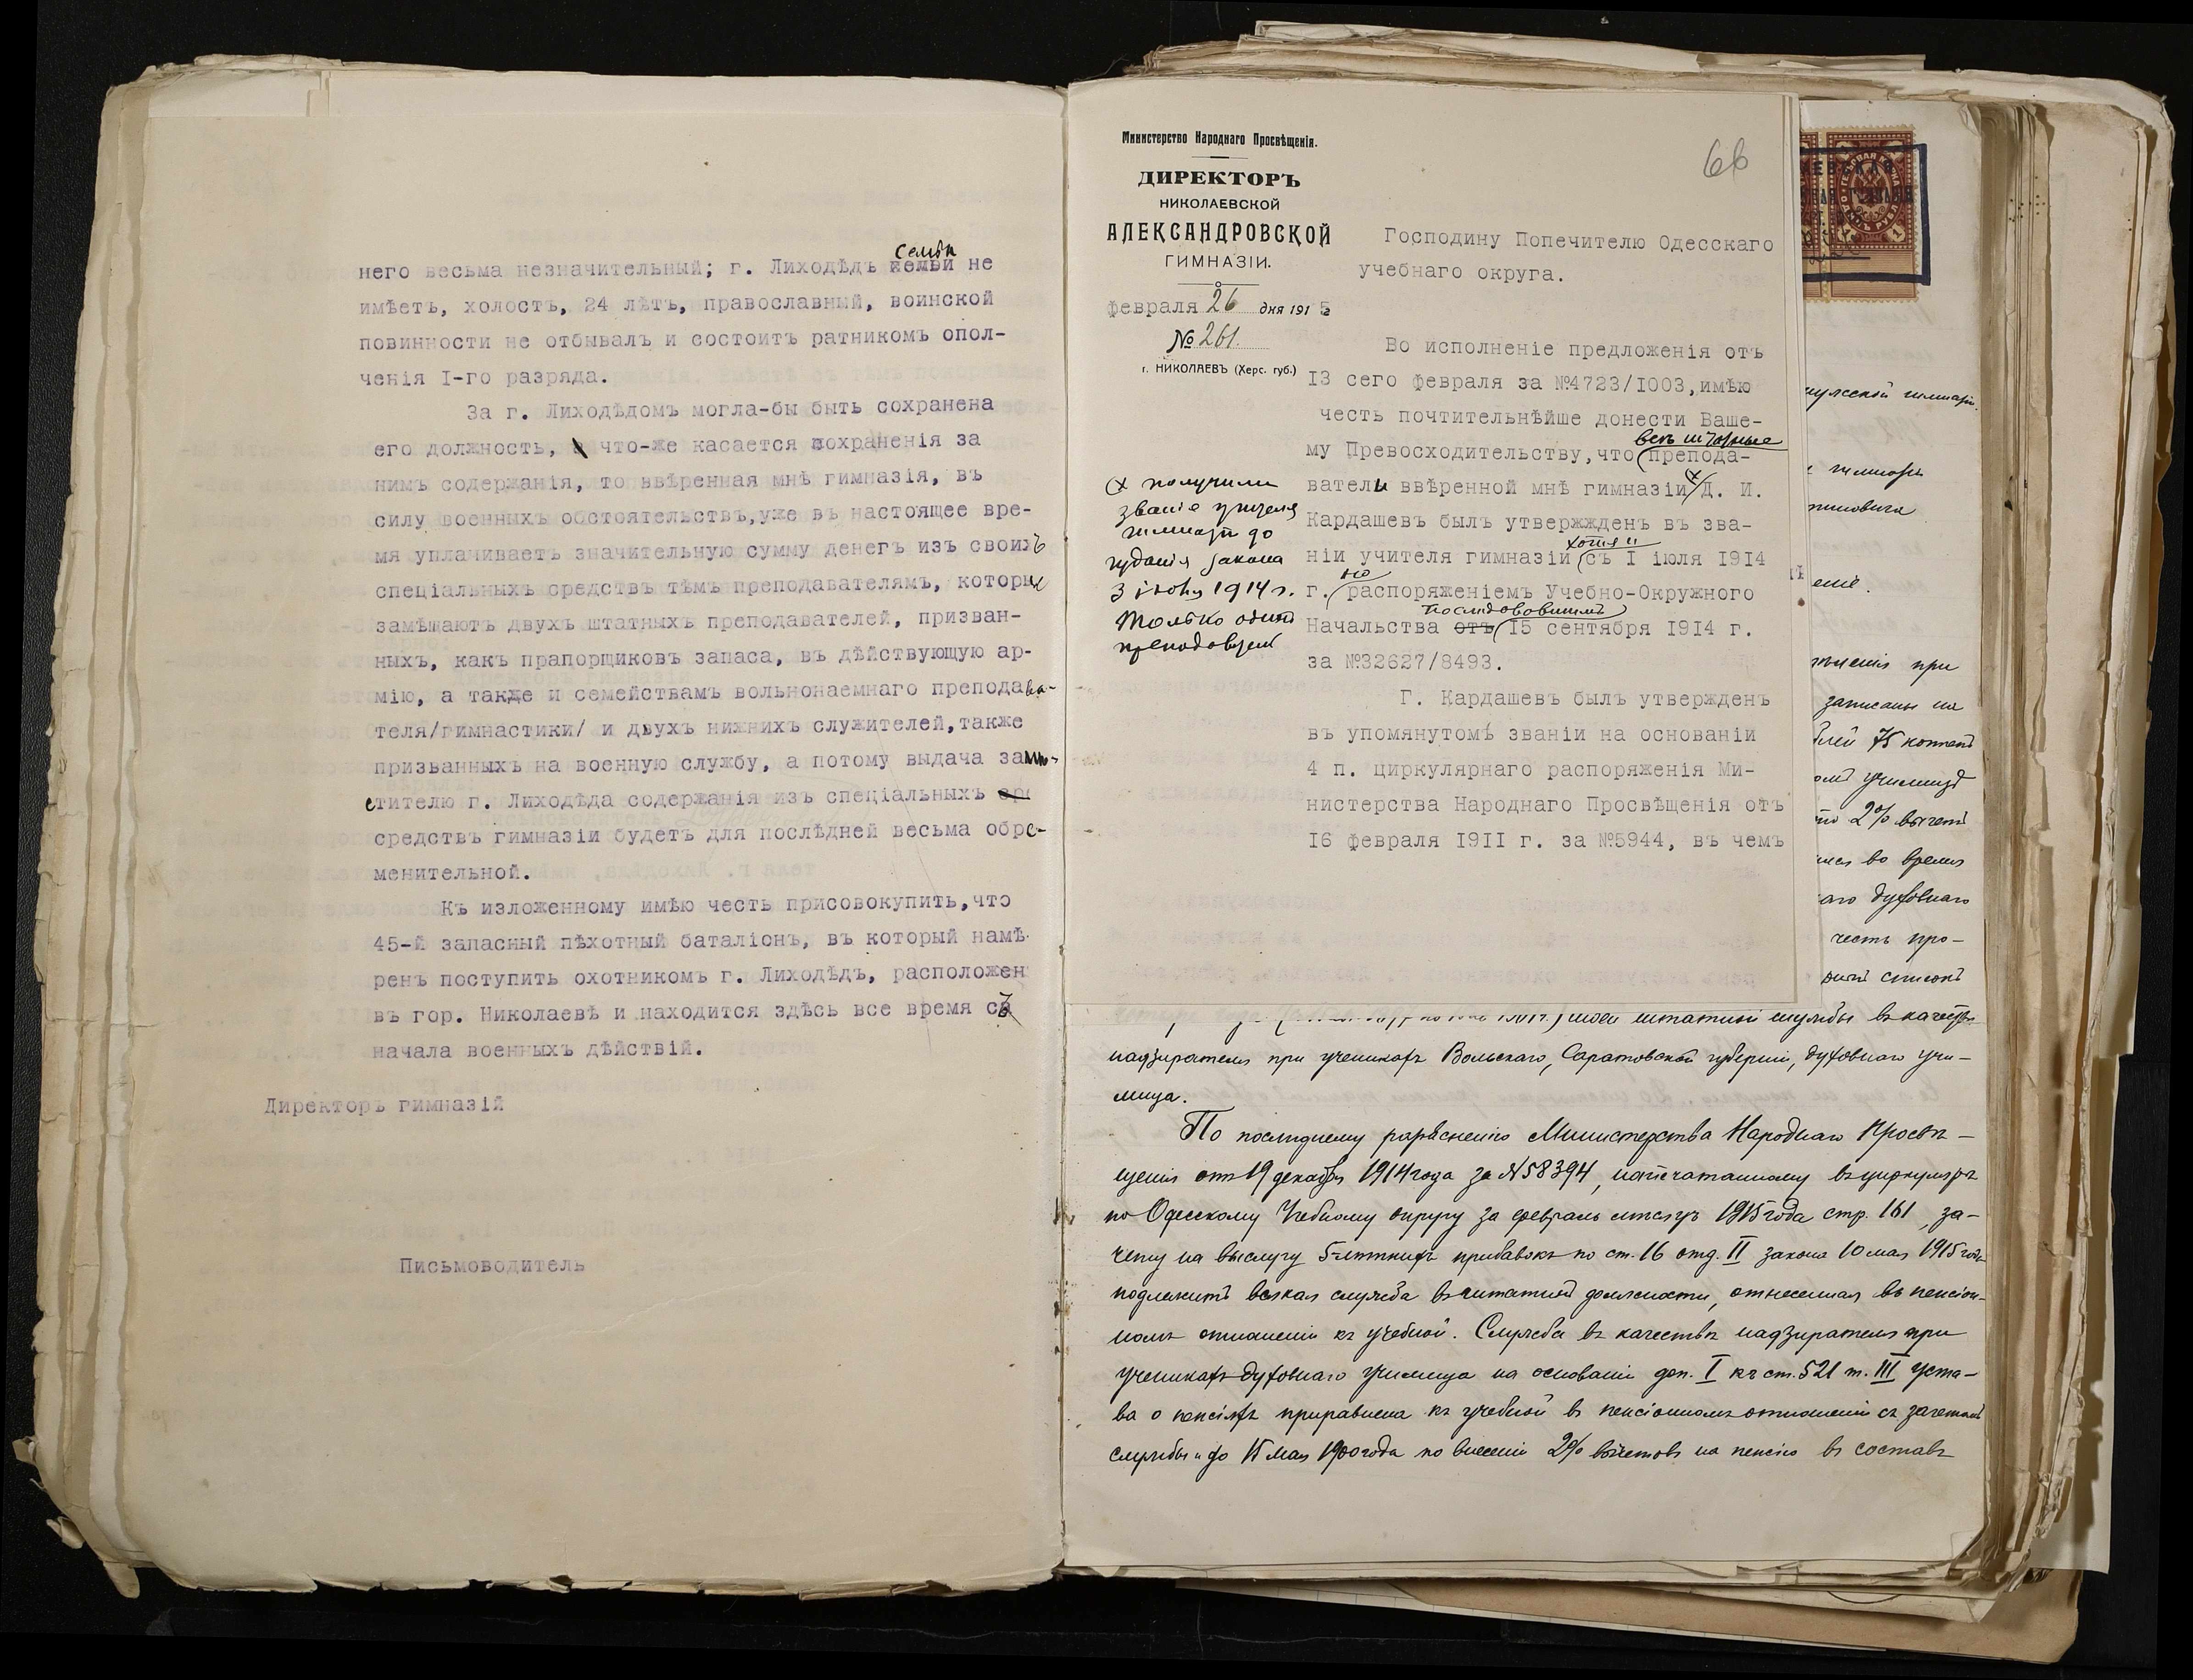 него весьма незначительный; г. Лиходѣдъ семьи не
семьи
имѣетъ, холостъ, 24 лѣтъ, православный, воинской
повинности не отбывалъ и состоитъ ратникомъ опол-
ченія I-го разряда.
За г. Лиходѣдомъ могла-бы быть сохранена
его должность, что-же касается сохраненія за
нимъ содержанія, то ввѣренная мнѣ гимназія, въ
силу военныхъ обстоятельствъ,уже въ настоящее вре-
мя уплачиваетъ значительную сумму денегъ изъ своихъ
спеціальныхъ средствъ тѣмъ преподавателямъ, которые
замѣщаютъ двухъ штатныхъ преподавателей, призван-
ныхъ, какъ прапорщиковъ запаса, въ дѣйствующую ар-
мію, а также и семействамъ вольнонаемнаго преподава-
теля/гимнастики/ и двухъ нижнихъ служителей,также
призванныхъ на военную службу, а потому выдача замѣ-
стителю г. Лиходѣда содержанія изъ спеціальныхъ
средствъ гимназіи будетъ для послѣдней весьма обре-
менительной.
Къ изложенному имѣю честь присовокупить,что
45-й запасный пѣхотный баталіонъ, въ который намѣ-
ренъ поступить охотникомъ г. Лиходѣдъ, расположен
въ гор. Николаевѣ и находится здѣсь все время съ
начала военныхъ дѣйствій.
Директоръ гимназій
Письмоводитель
Министерство Народнаго Просвѣщенія.
ДИРЕКТОРЪ
НИКОЛАЕВСКОЙ
АЛЕКСАНДРОВСКОЙ
ГИМНАЗІИ.
февраля 26 дня 1915
№ 261.
г. НИКОЛАЕВЪ (Херс. губ.)
66
Господину Попечителю Одесскаго
учебнаго округа.
Во исполненіе предложенія отъ
13 сего февраля за №4723/1003,имѣю
честь почтительнѣйше донести Ваше-
му Превосходительству,что препода-
ватели ввѣренной мнѣ гимназіи Д. И.
Кардашевъ былъ утвержжденъ въ зва-
ніи учителя гимназій хотя и съ I іюля 1914
г. но распоряженіемъ Учебно-Окружного
Начальства отъ послѣдовавшимъ 15 сентября 1914 г.
за №32627/8493.
получили
званіе учителя
гимназіи до
изданія закона
3 іюля 1914 г.
только одинъ
преподаватель
Г. Кардашевъ былъ утвержденъ
въ упомянутомъ званіи на основаніи
4 п. циркулярнаго распоряженія Ми-
нистерства Народнаго Просвѣщенія отъ
16 февраля 1911 г. за №5944, въ чемъ
еніе.
при
записаны на
75 копѣекъ
2% вычетъ
во время
аго духовнаго
честь про-
списокъ
моей штатной службы въ качествѣ
надзирателя при ученикахъ Вольскаго, Саратовской губерніи, духовнаго учи-
лища.
По послѣднему разъясненію Министерства Народнаго Просвѣ-
щенія отъ 19 декабря 1914 года за №58394, напечатанному въ циркулярѣ
по Одесскому Учебному округу за февраль мѣсяцъ 1915 года стр. 161, за-
чету на выслугу 5-лѣтнихъ прибавокъ по ст. 16 отд. II закона 10 мая 1915 года
подлежитъ всякая служба въ штатной должности, отнесенная въ пенсіон-
номъ отношеніи къ учебной. Служба въ качествѣ надзирателя при
ученикахъ духовнаго училища на основаніи доп. I къ ст. 521 т. III Уста-
ва о пенсіяхъ приравнена къ учебной въ пенсіонномъ отношеніи съ зачетомъ
службы и до 15 мая 1900 года по внесеніи 2% вычетовъ на пенсію въ составъ